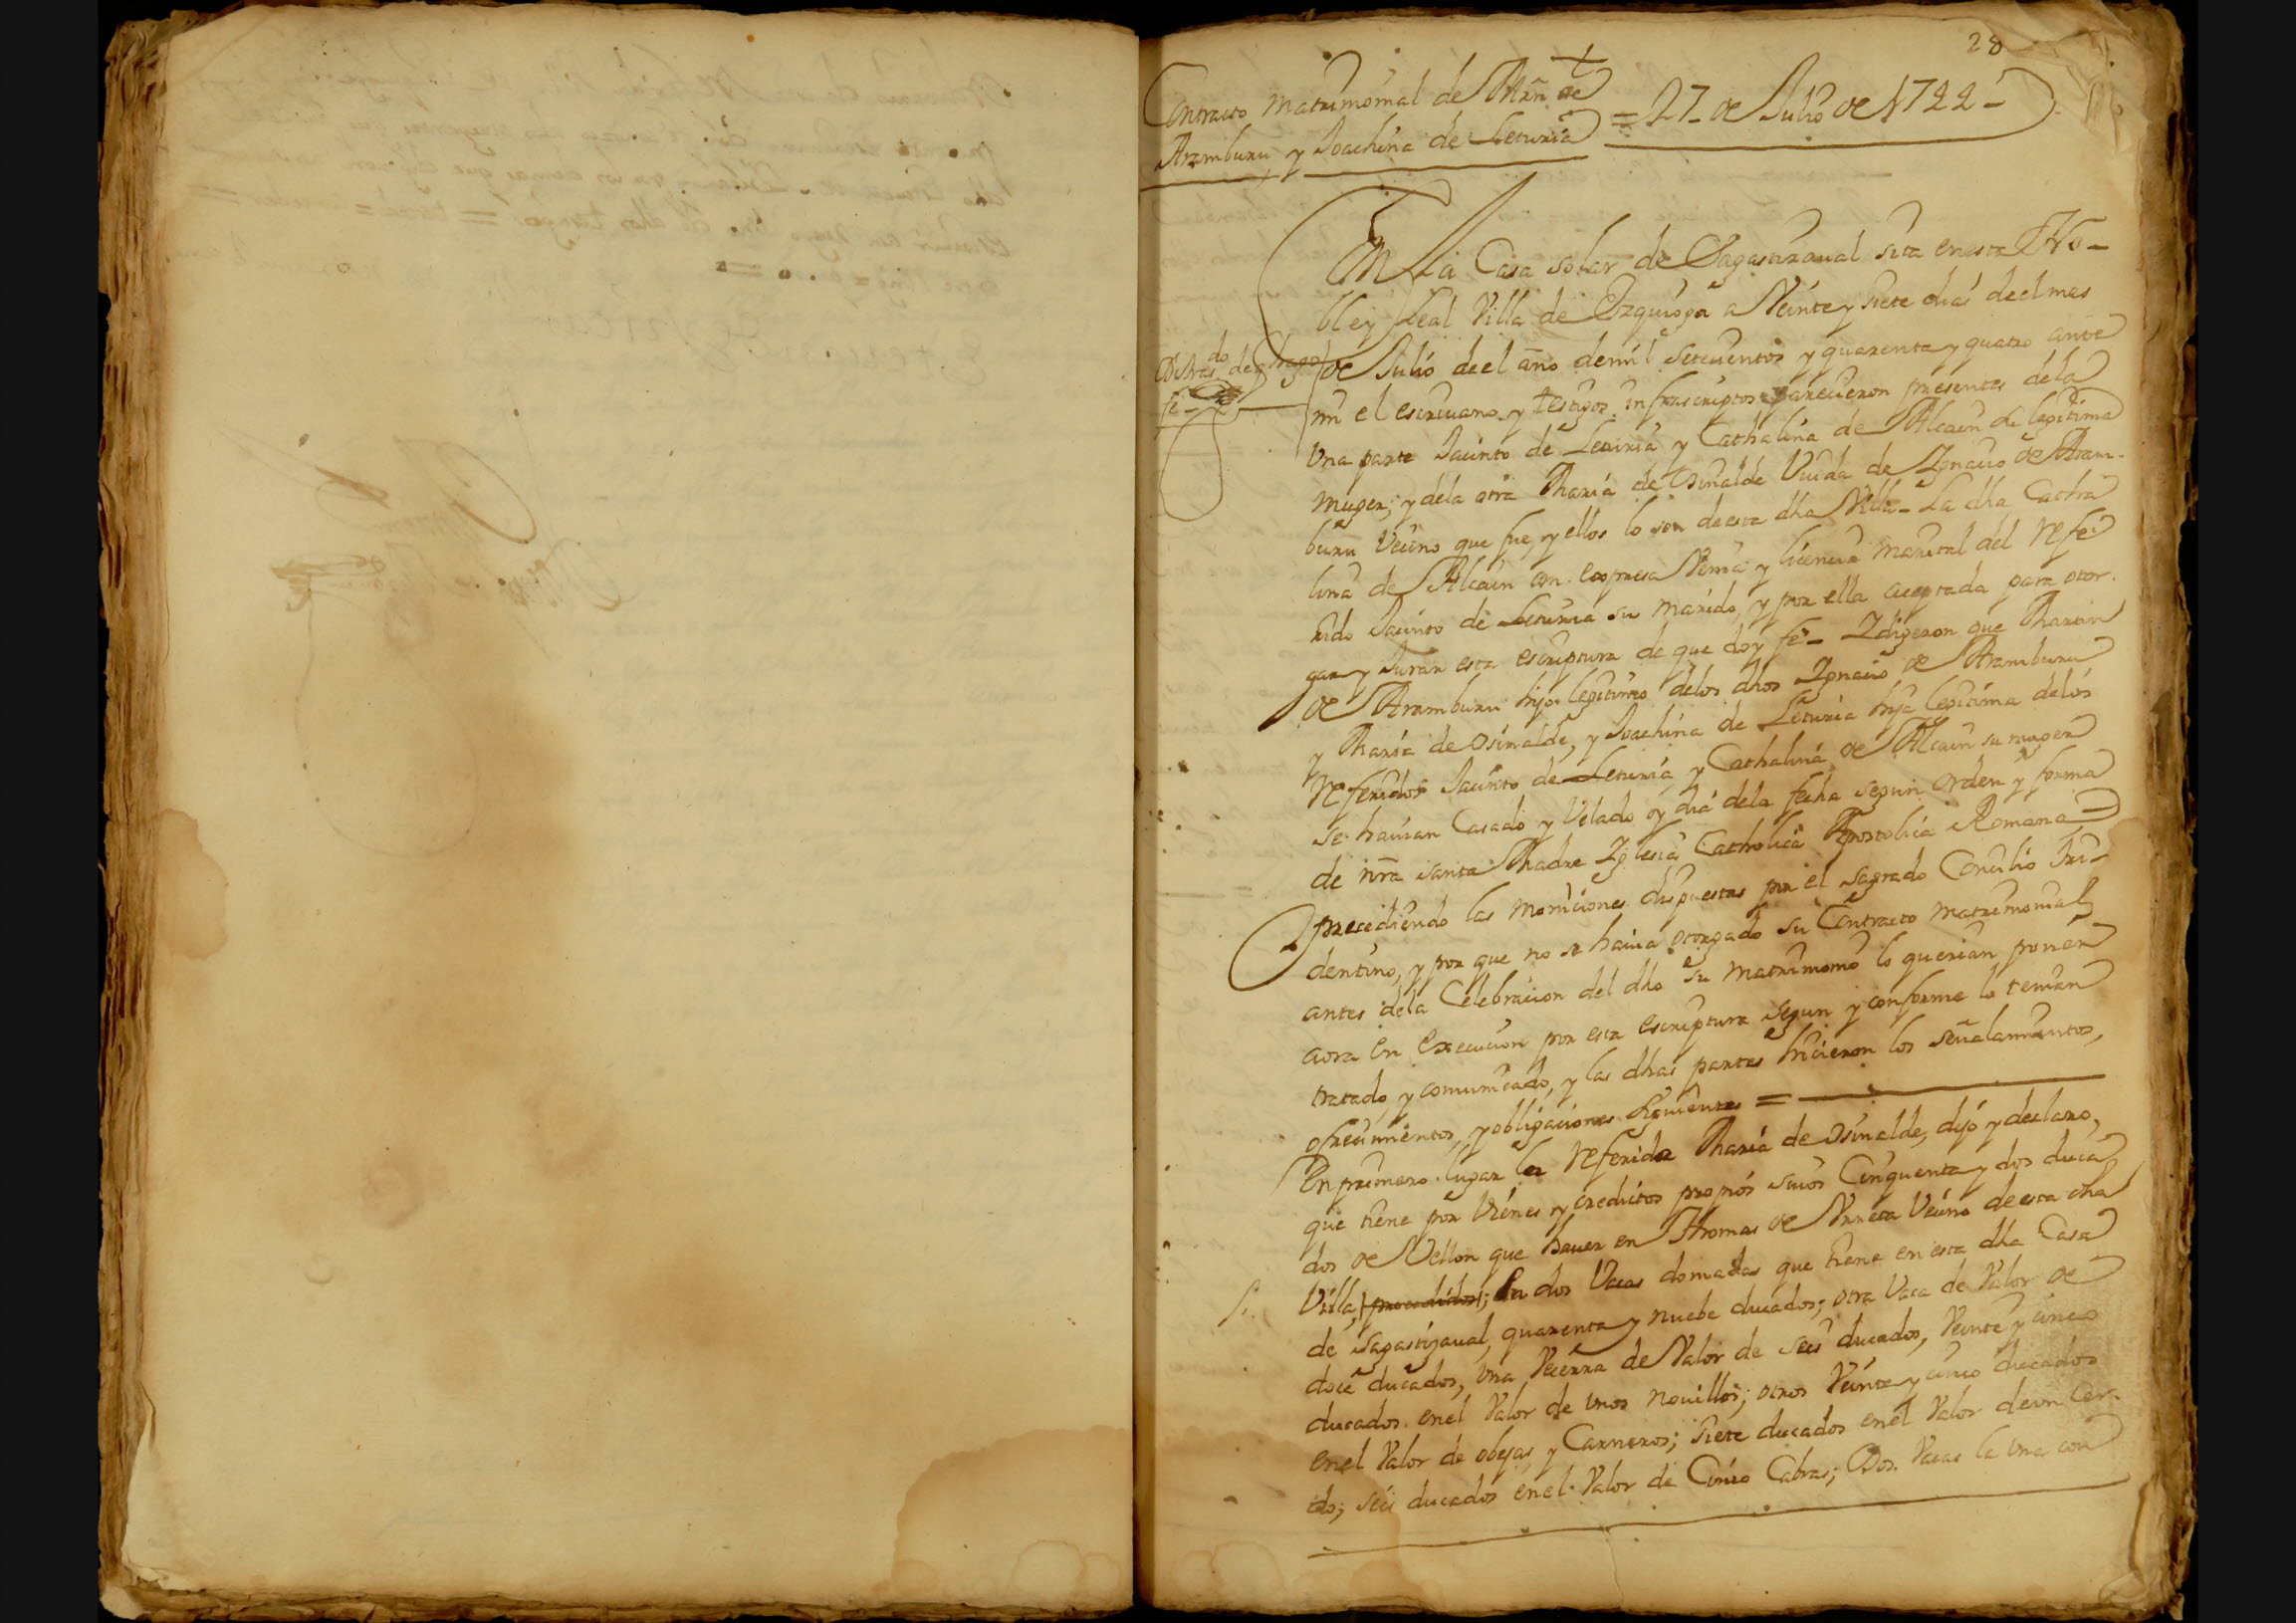 28
Contracto matrimonial de Mrn de
Aramburu y Joachina de Leturia
= 27 de Julio de 1744 -
En La Casa solar de Sagastizaval sita en esta No-
ble y Leal Villa de Ezquioga a Veinte y siete dias de el mes
de Julio de el año de mil setecientos y quarenta y quatro ante
mi el escriuano y testigos infrascriptos parecieron presentes de la
Una parte Jacinto de Leturia y Cathalina de Alcain su legitima
muger; y dela otra Maria de Osinalde Viuda de Ignacio de Aram-
buru Vecino que fue, y ellos lo son de esta dha Villa - La dha Catha
lina de Alcain con expresa Venia y licencia marital del refe
rido Jacinto de Leturia su marido, y por ella aceptada para otor-
gar y Jurar esta escriptura de que doy fe - Y digeron que Martin
de Aramburu hijo legitimo delos dhos Ignacio de Aramburu
y Maria de Osinalde, y Joachina de Leturia hija legitima delos
referidos Jacinto de Leturia y Cathalina de Alcain su muger
se hauian Casado y Velado oy dia dela fecha segun orden y forma
de nra santa Madre Iglesia Catholica Apostolica Romana
precediendo las moniciones dispuestas por el sagrado Concilio Tri-
dentino, y por que no se hauia otorgado su Contracto matrimonial
antes dela Celebracion del dho su matrimonio lo querian poner
aora en execucion por esta escriptura segun y conforme lo tenian
tratado, y comunicado, y las dhas partes hicieron los señalamientos,
ofrecimientos, y obligaciones siguientes =
En primero lugar la referida Maria de Osinalde, dijo y declaro,
que tiene por Vienes y creditos propios suios Cinquenta y dos duca
dos de Vellon que hauer en Thomas de Vecino de esta dha
Villa, ; En dos Vacas domadas que tiene en esta dha Casa
de Sagastizaval, quarenta y nuebe ducados; otra Vaca de Valor de
doce ducados, Una Vecerra de Valor de seis ducados, Veinte y cinco
ducados en el Valor de unos nouillos; otros Veinte y cinco ducados
en el Valor de obejas, y Carneros; siete ducados en el Valor de un Cer-
do; seis ducados en el Valor de Cinco Cabras; Dos Vacas la una con